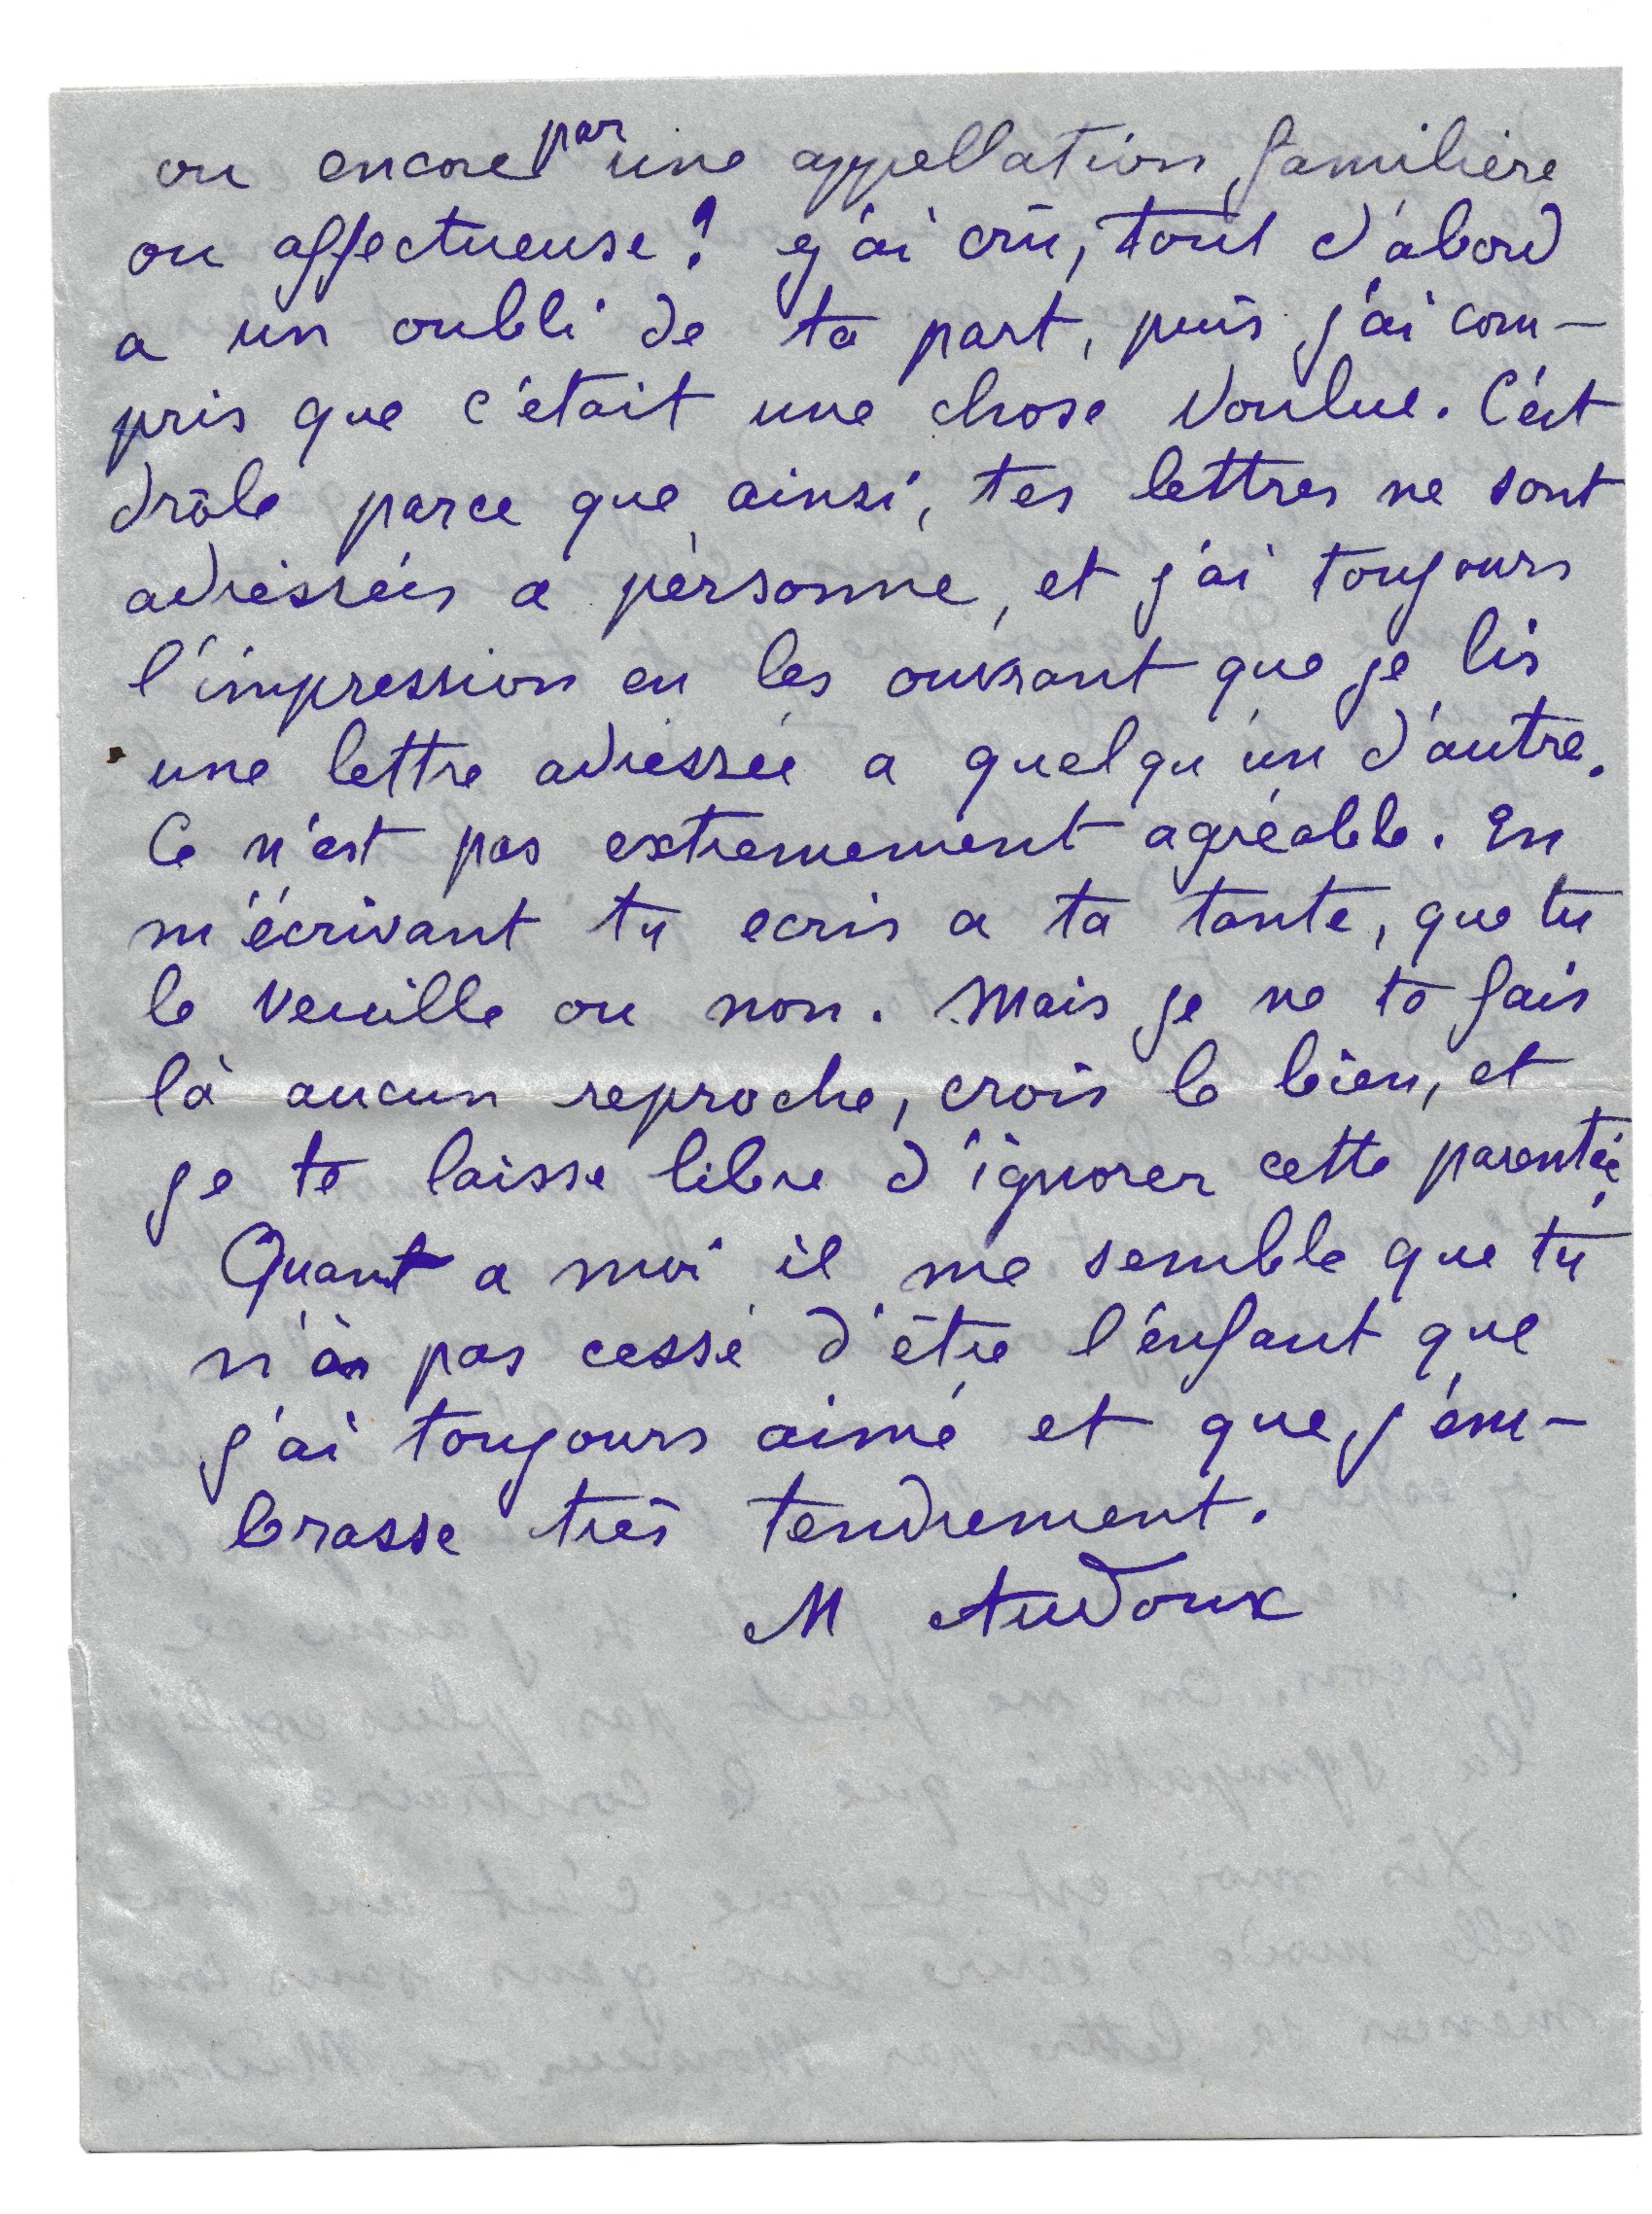 ou encore par une appellation familière
ou affectueuse ? j'ai crû, tout d'abord
a un oubli de ta part, puis j'ai com-
pris que c'était une chose voulue. C'est
drôle parce que ainsi, tes lettres ne sont
adressées a personne, et j'ai toujours
l'impression en les ouvrant que je lis
une lettre adressée a quelqu'un d'autre.
Ce n'est pas extremement agréable. En
m'écrivant tu ecris a ta tante, que tu
le veuille ou non. Mais je ne te fais
là aucun reproche, crois le bien, et
je te laisse libre d'ignorer cette parentée.
Quant a moi il me semble que tu
n'as pas cessé d'être l'enfant que
j'ai toujours aimé et que j'em-
brasse très tendrement.
M Audoux